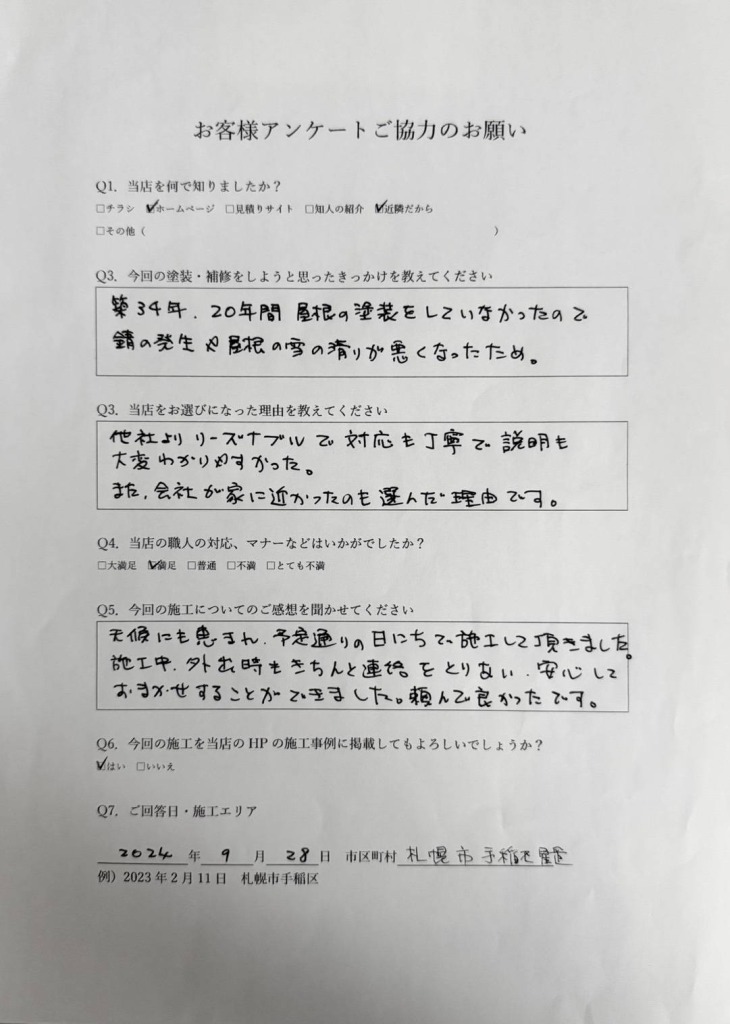 お客様アンケートご協力のお願い
Q1. 当店を何で知りましたか？
□チラシ ☑ホームページ □見積りサイト □知人の紹介 ☑近隣だから
□その他（ ）
Q3. 今回の塗装・補修をしようと思ったきっかけを教えてください
築34年．20年間 屋根の塗装をしていなかったので
錆の発生や屋根の雪の滑りが悪くなったため。
Q3. 当店をお選びになった理由を教えてください
他社より リーズナブルで 対応も丁寧で 説明も
大変わかりやすかった。
また，会社が家に近かったのも選んだ理由です。
Q4. 当店の職人の対応、マナーなどはいかがでしたか？
□大満足 ☑満足 □普通 □不満 □とても不満
Q5. 今回の施工についてのご感想を聞かせてください
天候にも恵まれ．予定通りの日にちで施工して頂きました。
施工中．外出時もきちんと連絡をとりあい．安心して
おまかせすることができました。頼んで良かったです。
Q6. 今回の施工を当店の HP の施工事例に掲載してもよろしいでしょうか？
☑はい □いいえ
Q7. ご回答日・施工エリア
2024 年 9 月 28 日 市区町村 札幌市手稲区
例）2023 年 2 月 11 日 札幌市手稲区